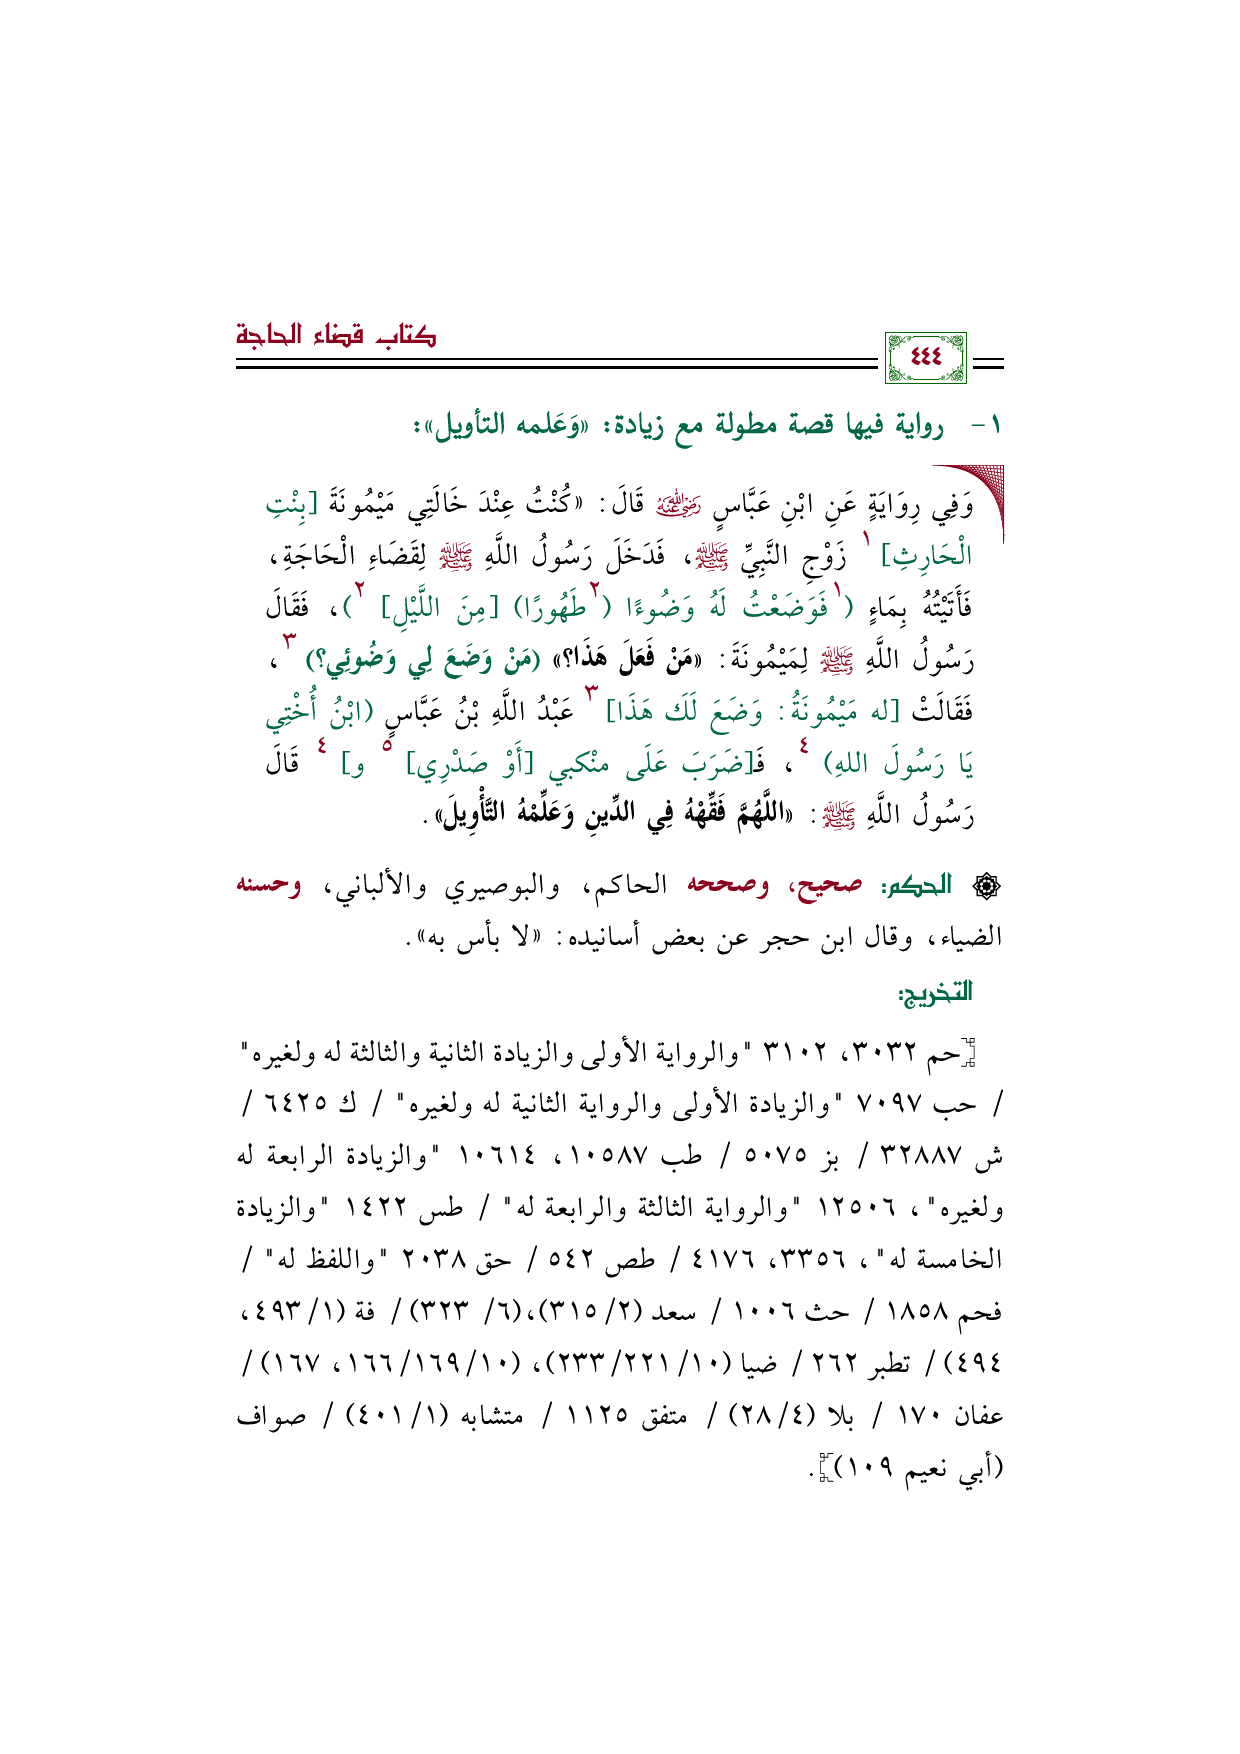 كتاب قضاء الحاجة
٤٤٤
١- رواية فيها قصة مطولة مع زيادة: «وَعَلمه التأويل»:
وَفِي رِوَايَةٍ عَنِ ابْنِ عَبَّاسٍ رضي الله عنه قَالَ: «كُنْتُ عِنْدَ خَالَتِي مَيْمُونَةَ [بِنْتِ
الْحَارِثِ] ١ زَوْجِ النَّبِيِّ ﷺ، فَدَخَلَ رَسُولُ اللَّهِ ﷺ لِقَضَاءِ الْحَاجَةِ،
فَأَتَيْتُهُ بِمَاءٍ (١ فَوَضَعْتُ لَهُ وَضُوءًا (٢ طَهُورًا) [مِنَ اللَّيْلِ] ٢)، فَقَالَ
رَسُولُ اللَّهِ ﷺ لِمَيْمُونَةَ: «مَنْ فَعَلَ هَذَا؟» (مَنْ وَضَعَ لِي وَضُوئِي؟) ٣،
فَقَالَتْ [له مَيْمُونَةُ: وَضَعَ لَكَ هَذَا] ٣ عَبْدُ اللَّهِ بْنُ عَبَّاسٍ (ابْنُ أُخْتِي
يَا رَسُولَ اللهِ) ٤، فَـ[ضَرَبَ عَلَى منْكبي [أَوْ صَدْرِي] ٥ و] ٤ قَالَ
رَسُولُ اللَّهِ ﷺ: «اللَّهُمَّ فَقِّهْهُ فِي الدِّينِ وَعَلِّمْهُ التَّأْوِيلَ».
الحكم: صحيح، وصححه الحاكم، والبوصيري والألباني، وحسنه
الضياء، وقال ابن حجر عن بعض أسانيده: «لا بأس به».
التخريج:
[حم ٣٠٣٢، ٣١٠٢ "والرواية الأولى والزيادة الثانية والثالثة له ولغيره"
/ حب ٧٠٩٧ "والزيادة الأولى والرواية الثانية له ولغيره" / ك ٦٤٢٥ /
ش ٣٢٨٨٧ / بز ٥٠٧٥ / طب ١٠٥٨٧، ١٠٦١٤ "والزيادة الرابعة له
ولغيره"، ١٢٥٠٦ "والرواية الثالثة والرابعة له" / طس ١٤٢٢ "والزيادة
الخامسة له"، ٣٣٥٦، ٤١٧٦ / طص ٥٤٢ / حق ٢٠٣٨ "واللفظ له" /
فحم ١٨٥٨ / حث ١٠٠٦ / سعد (٢/ ٣١٥)،(٦/ ٣٢٣) / فة (١/ ٤٩٣،
٤٩٤) / تطبر ٢٦٢ / ضيا (١٠/ ٢٢١/ ٢٣٣)، (١٠/ ١٦٩/ ١٦٦، ١٦٧) /
عفان ١٧٠ / بلا (٤/ ٢٨) / متفق ١١٢٥ / متشابه (١/ ٤٠١) / صواف
(أبي نعيم ١٠٩)].